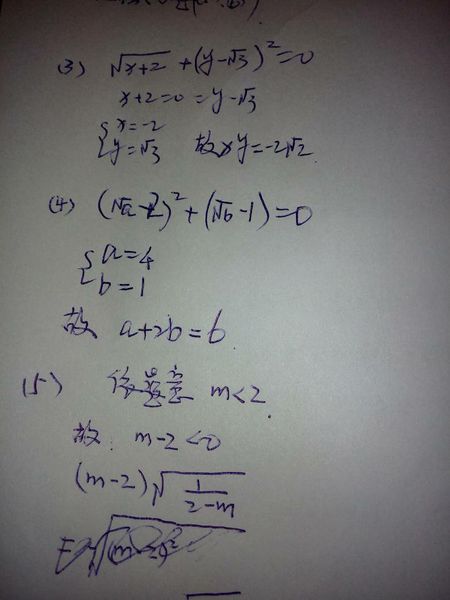 (3) √(x+2) + (y-√3)² = 0
x+2=0 = y-√3
{x=-2
{y=√3 故xy=-2√2
(4) (√a-2)² + (√b-1) = 0
{a=4
{b=1
故 a+2b=6
(5) 依题意 m<2
故 m-2<0
(m-2)√(1/(2-m))